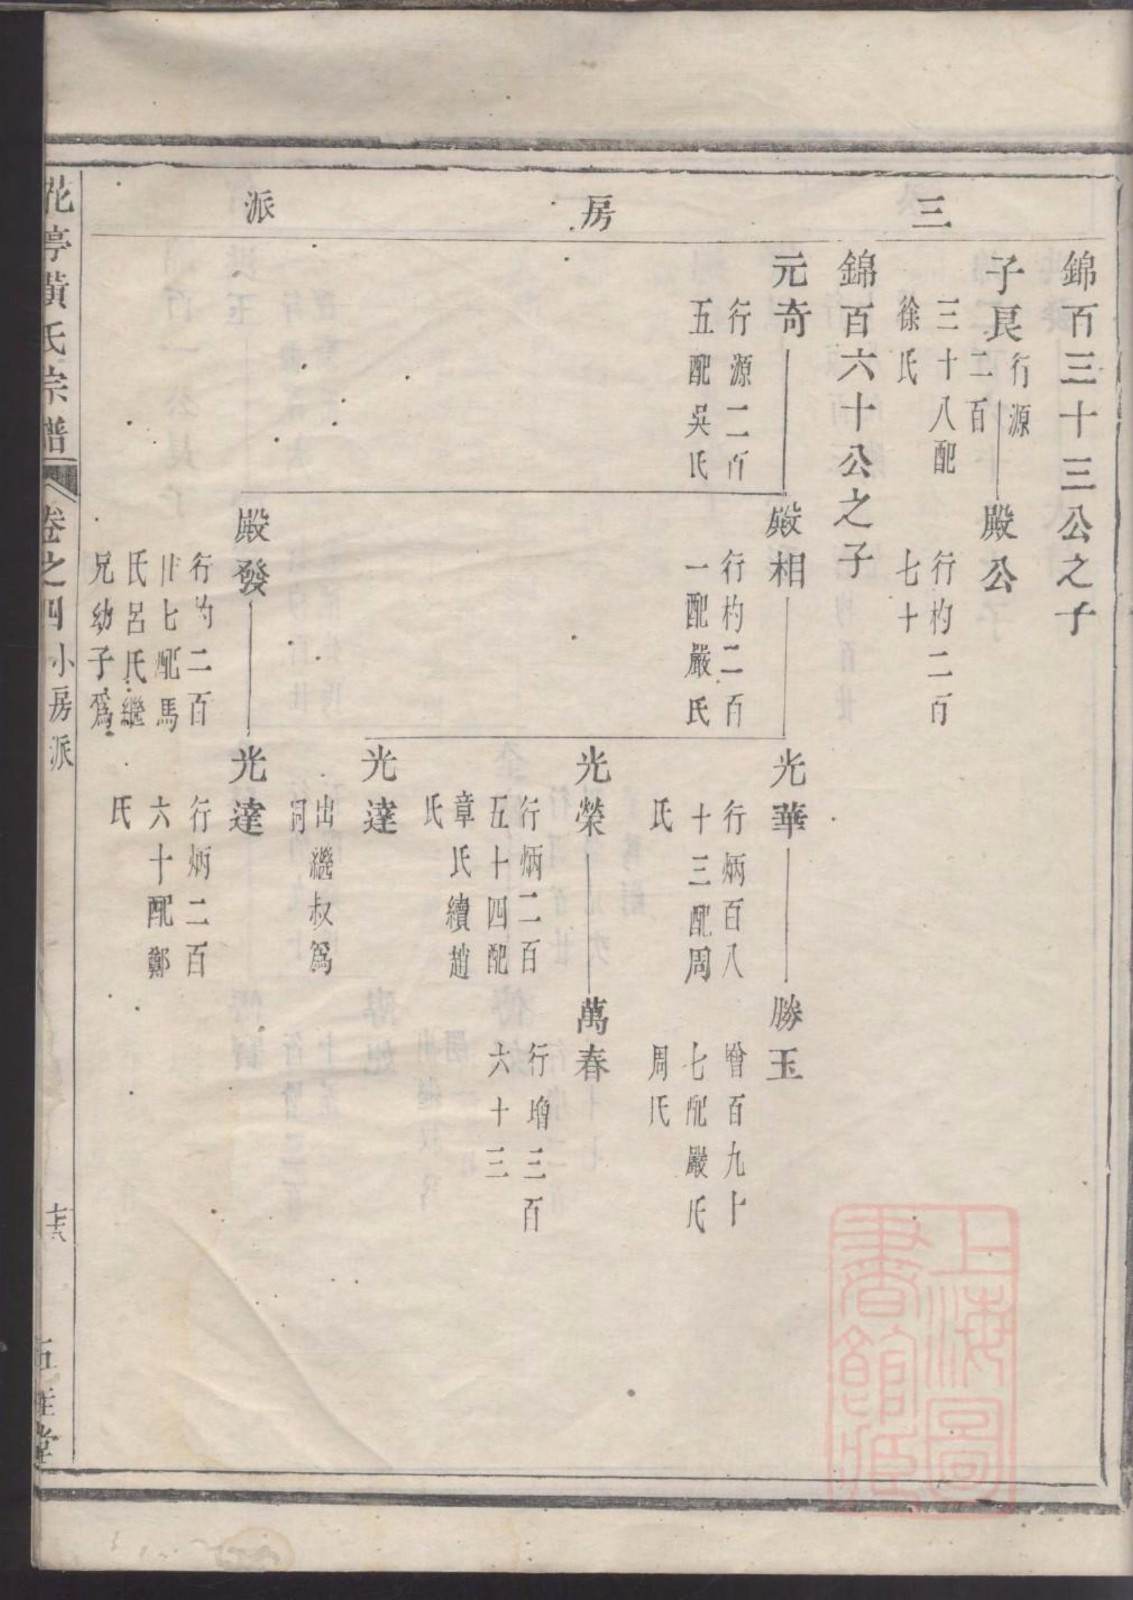 三房派
錦百三十三公之子
子良
行源
二百
三十八配
徐氏
殿公
行杓二百
七十
錦百六十公之子
元奇
行源二百
五配吳氏
殿相
行杓二百
一配嚴氏
光華
行炳百八
十三配周
氏
勝玉
曾百九十
七配嚴氏
周氏
光榮
行炳二百
五十四配
章氏續趙
氏
萬春
行增三百
六十三
光達
出繼叔爲
祠
殿發
行杓二百
廿七配馬
氏呂氏繼
兄幼子爲
光達
行炳二百
六十配鄭
氏
花亭黃氏宗譜
卷之四
小房派
堂
上海圖
書館藏